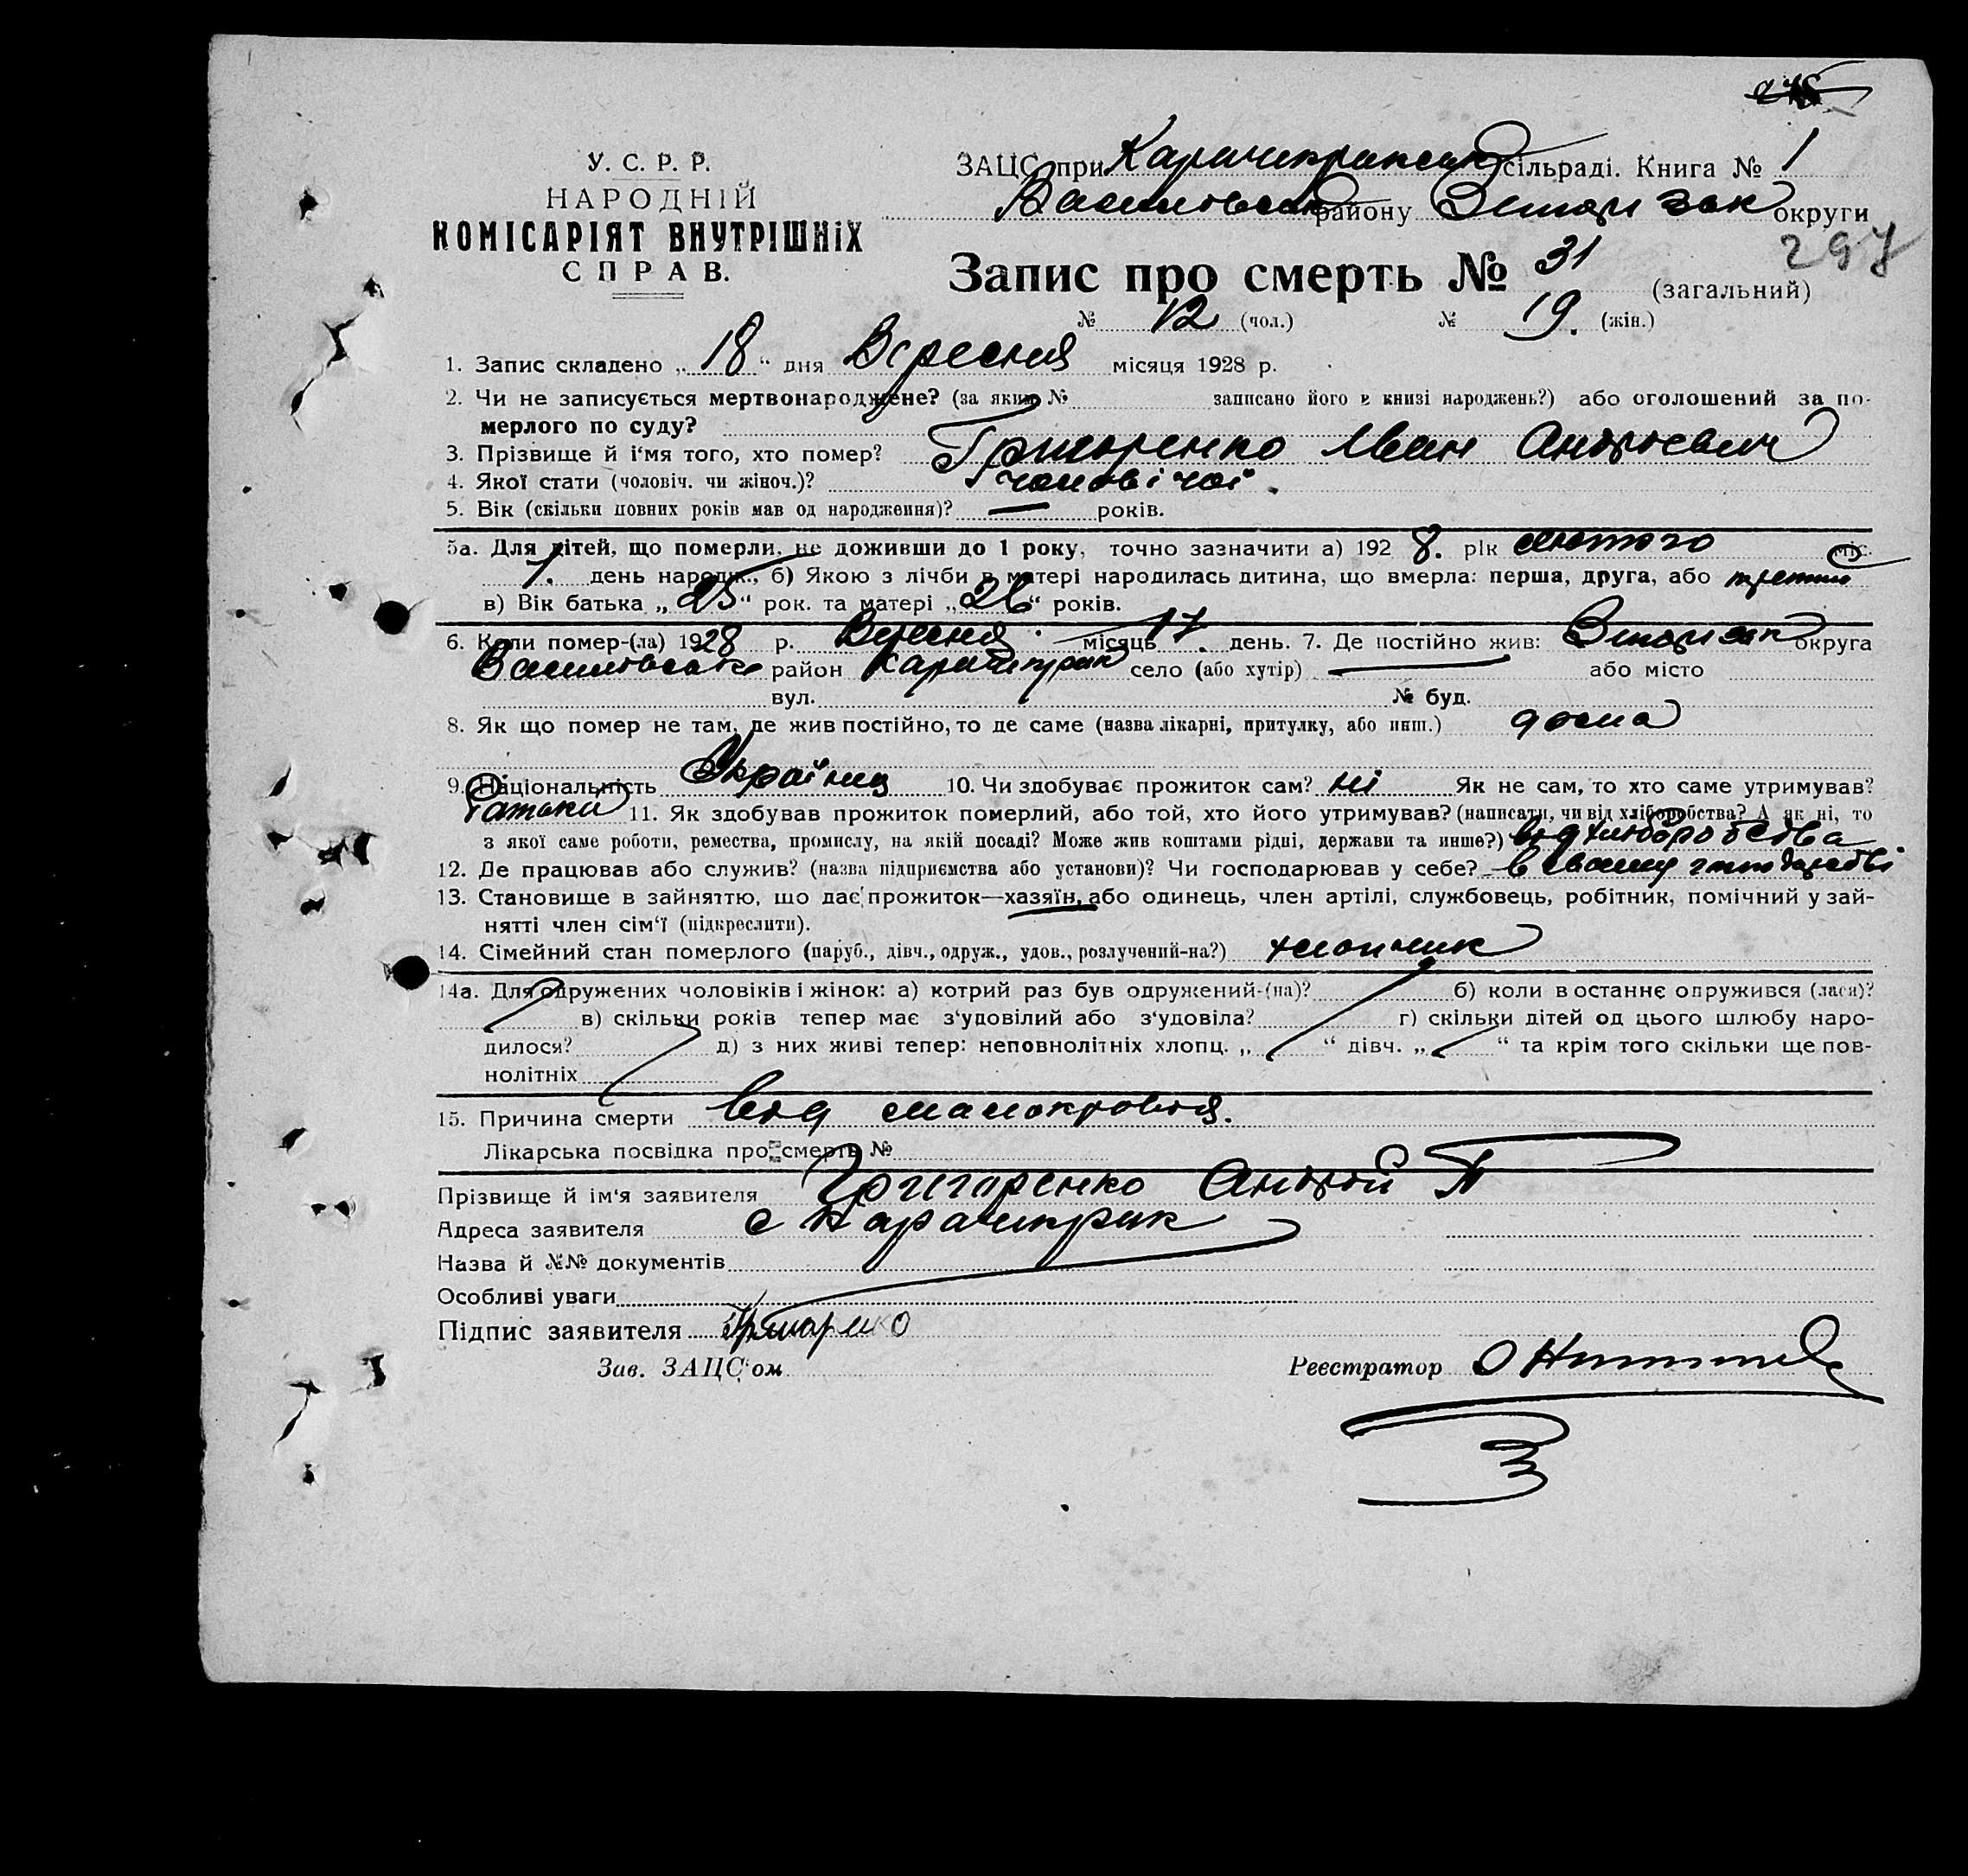 У. С. Р. Р.
НАРОДНІЙ
КОМІСАРІЯТ ВНУТРІШНІХ
СПРАВ.
ЗАЦС при сільраді. Книга № 1
району округи
297
Запис про смерть № 31 (загальний)
№ 12 (чол.) № 19. (жін.)
1. Запис складено „18“ дня Вересня місяця 1928 р.
2. Чи не записується мертвонароджене? (за яким № записано його в книзі народжень?) або оголошений за по-
мерлого по суду?
3. Прізвище й і'мя того, хто помер? Григоренко Иван Андрієвич
4. Якої стати (чоловіч. чи жіноч.)? чоловічої.
5. Вік (скільки повних років мав од народження)? — років.
5а. Для дітей, що померли, не доживши до 1 року, точно зазначити а) 1928. рік лютого міс.
7. день народж., б) Якою з лічби в матері народилась дитина, що вмерла: перша, друга, або
в) Вік батька „25“ рок. та матері „26“ років.
6. Коли помер-(ла) 1928 р. Вересня місяць 17. день. 7. Де постійно жив: округа
район Карачикрак село (або хутір) — або місто
вул. № буд.
8. Як що помер не там, де жив постійно, то де саме (назва лікарні, притулку, або инш.) дома
9. Національність Україниц 10. Чи здобуває прожиток сам? ні Як не сам, то хто саме утримував?
11. Як здобував прожиток померлий, або той, хто його утримував? (написати, чи від хліборобства? А як ні, то
з якої саме роботи, ремества, промислу, на якій посаді? Може жив коштами рідні, держави та инше?) від хліборобства
12. Де працював або служив? (назва підприємства або установи)? Чи господарював у себе? в своему господарстві
13. Становище в зайняттю, що дає прожиток—хазяїн, або одинець, член артілі, службовець, робітник, помічний у зай-
нятті член сім'ї (підкреслити).
14. Сімейний стан померлого (паруб., дівч., одруж., удов., розлучений-на?) хлопчик
14а. Для одружених чоловіків і жінок: а) котрий раз був одружений-(на)? б) коли востаннє одружився (лася)?
в) скільки років тепер має з'удовілий або з'удовіла? г) скільки дітей од цього шлюбу наро-
дилося? д) з них живі тепер: неповнолітніх хлопц. „ “ дівч. „ “ та крім того скільки ще пов-
нолітніх
15. Причина смерти від малокровія.
Лікарська посвідка про смерть №
Прізвище й ім'я заявителя Григоренко Андрій П
Адреса заявителя с Карачикрак
Назва й №№ документів
Особливі уваги
Підпис заявителя
Зав. ЗАЦС'ом Реестратор